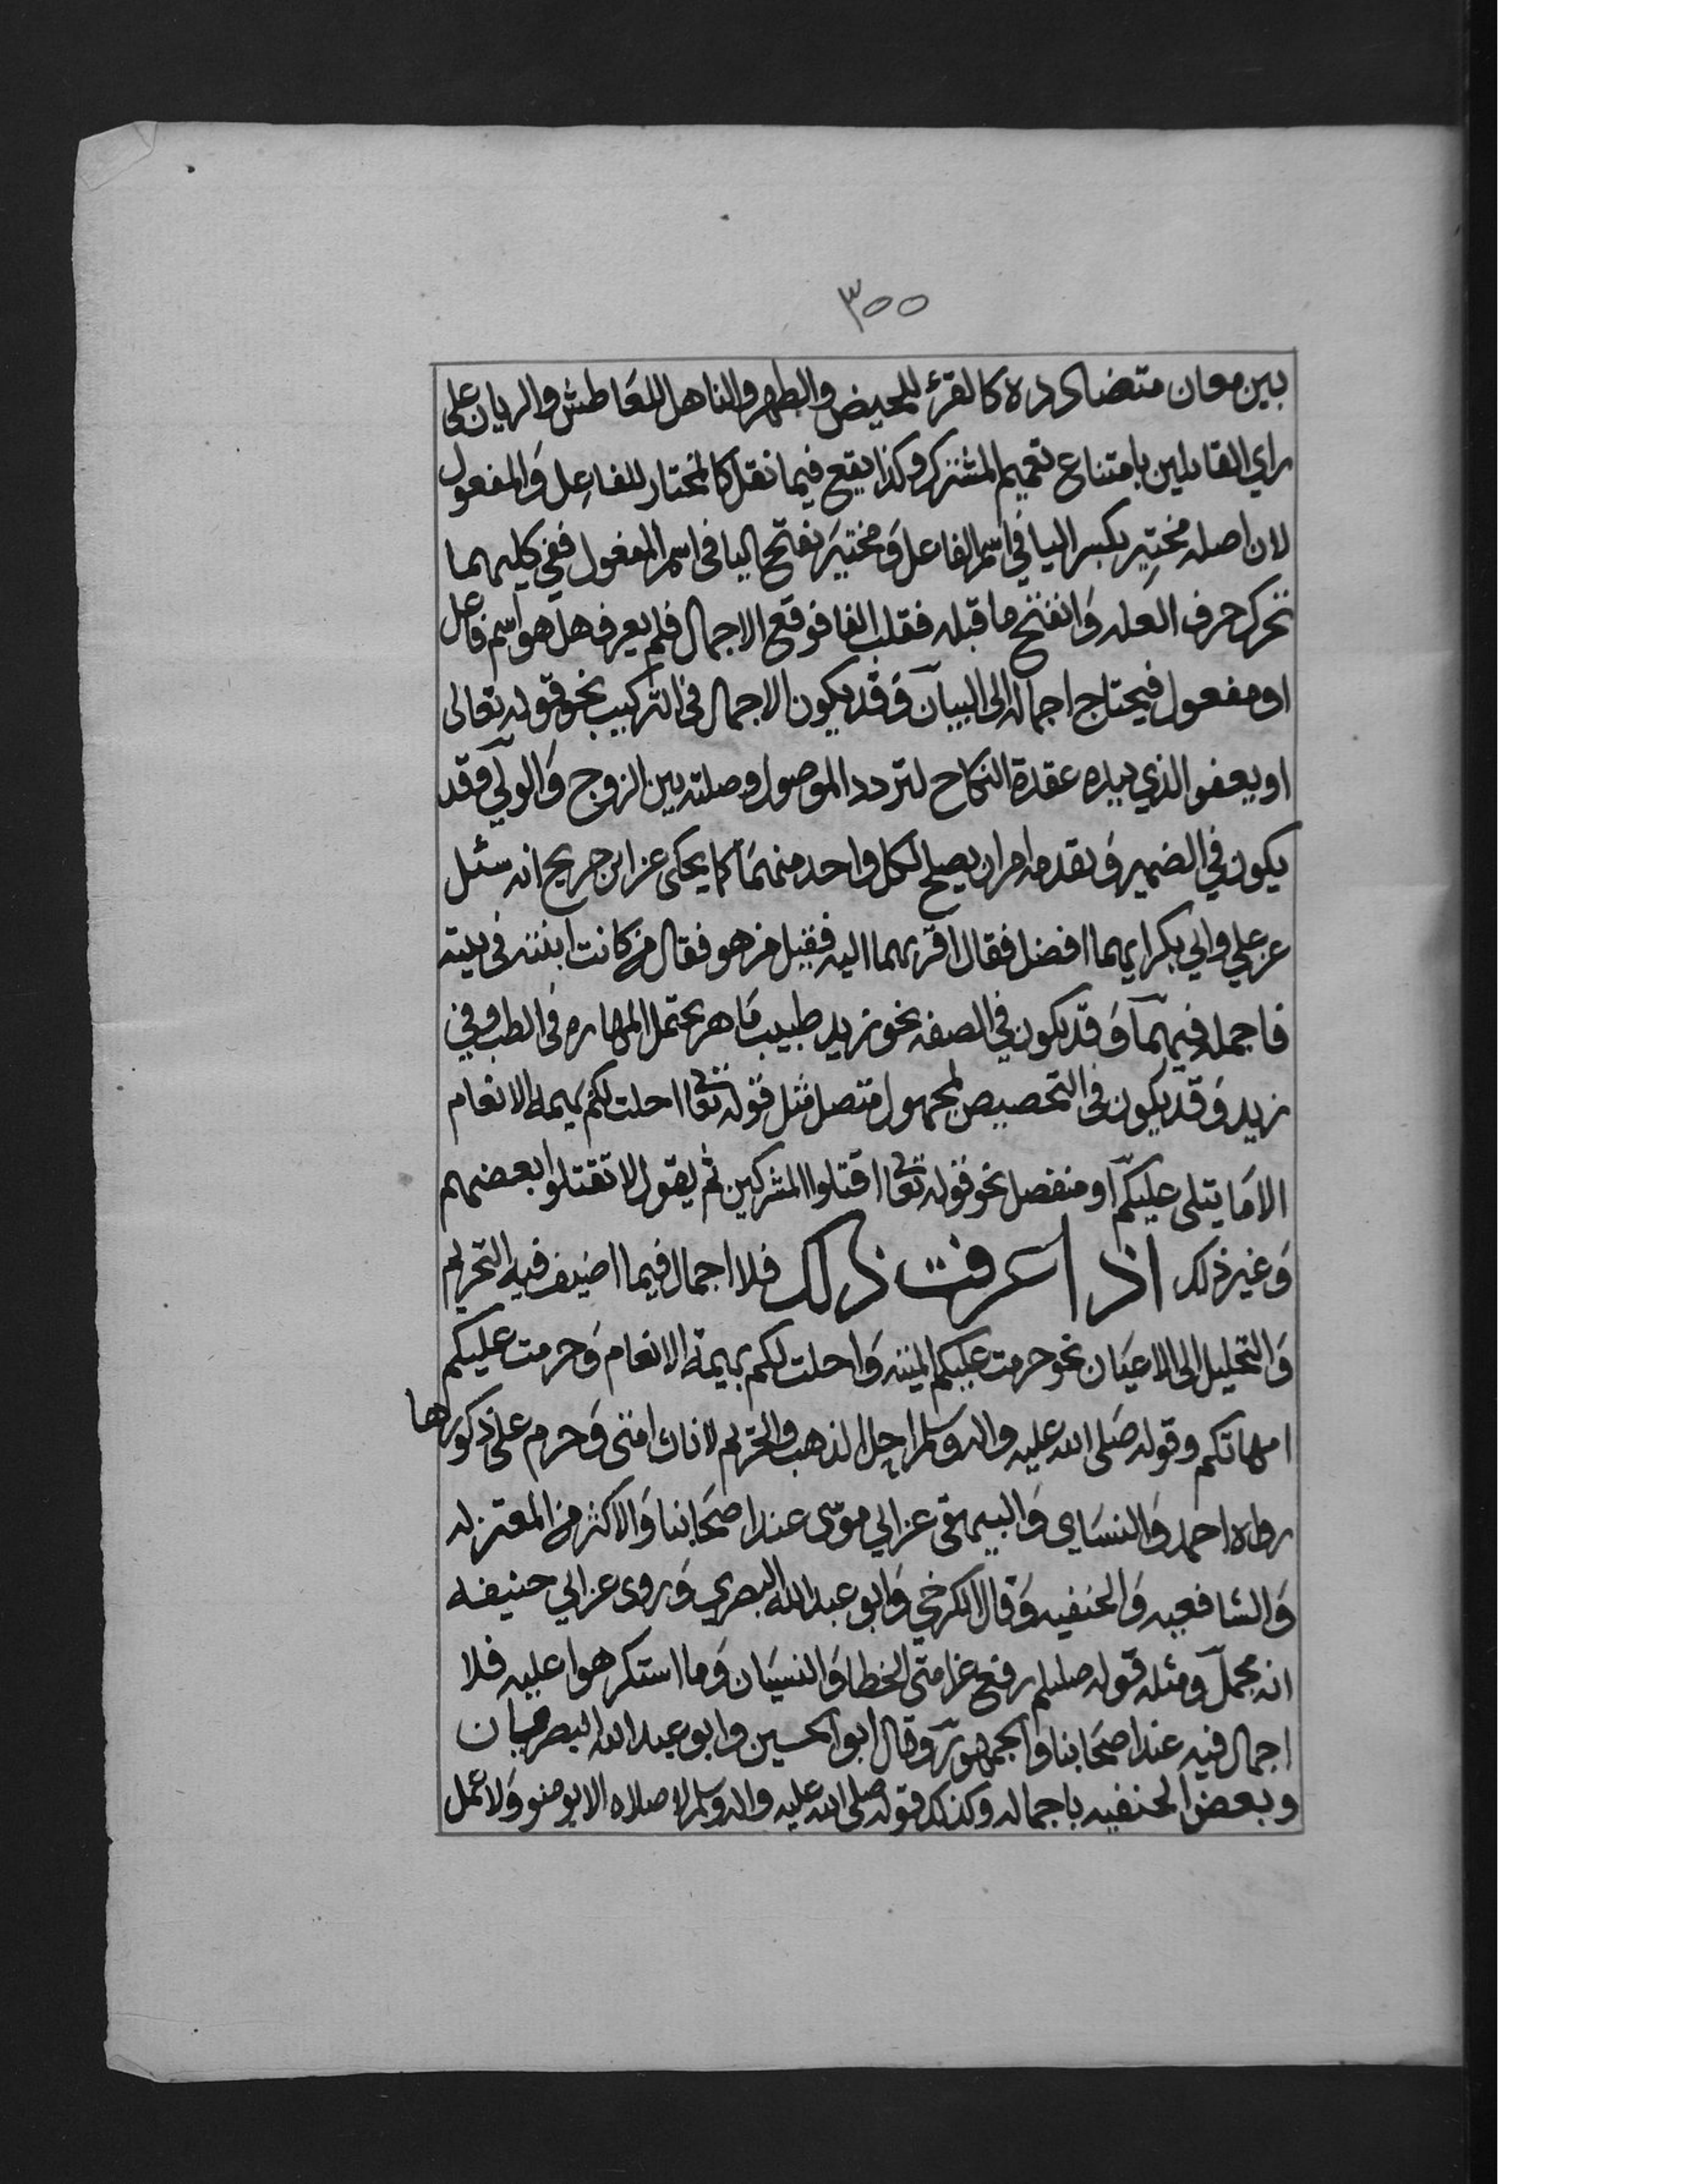 ٣٥٥
بين معان متضادده كالقرء للحيض والطهر والناهل للعاطش والريان على
راي القايلين بامتناع تعميم المشترك وكذا يقع فيما نقل كالمختار للفاعل والمفعول
لان اصله مختير بكسر اليا في اسم الفاعل ومختير بفتح اليا في اسم المفعول ففي كليهما
تحرك حرف العله وانفتح ما قبله فقلب الفا فوقع الاجمال فلم يعرف هل هو اسم فاعل
او مفعول فيحتاج اجماله الى البيان وقد يكون الاجمال في التركيب نحو قوله تعالى
او يعفو الذي بيده عقدة النكاح لتردد الموصول وصلته بين الزوج والولي وقد
يكون في الضمير وتقدمه امران يصلح لكل واحد منهما كما يحكى عن ابن جريج انه سئل
عن علي وابي بكر ايهما افضل فقال اقربهما اليه فقيل من هو فقال من كانت ابنته في بيته
فاجمله فيهما وقد يكون في الصفه نحو زيد طبيب ماهر يحتمل المهاره في الطب وفي
زيد وقد يكون في التخصيص لمجهول متصل مثل قوله تعا احلت لكم بهيمة الانعام
الا ما يتلى عليكم او منفصل نحو قوله تعا اقتلوا المشركين ثم يقول لا تقتلوا بعضهم
وغير ذلك اذا عرفت ذلك فلا اجمال فيما اضيف فيه التحريم
والتحليل الى الاعيان نحو حرمت عليكم الميته واحلت لكم بهيمة الانعام وحرمت عليكم
امهاتكم وقوله صلى الله عليه واله وسلم احل الذهب والحرير لاناث امتي وحرم على ذكورها
رواه احمد والنساي والبيهقي عن ابي موسى عند اصحابنا والاكثر من المعتزله
والشافعيه والحنفيه وقال الكرخي وابو عبدالله البصري وروى عن ابي حنيفه
انه مجمل ومثله قوله صللم رفع عن امتي الخطا والنسيان وما استكرهوا عليه فلا
اجمال فيه عند اصحابنا والجمهور وقال ابو الحسين وابو عبدالله البصريان
وبعض الحنفيه باجماله وكذلك قوله صلى الله عليه واله وسلم لا صلاه الا بوضو ولا عمل